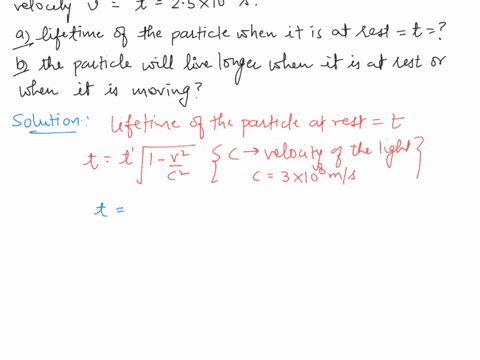 velocity v = t = 2.5×10 s.
a) lifetime of the particle when it is at rest = t = ?
b) the particle will live longer when it is at rest or
when it is moving?
Solution: lifetime of the particle at rest = t
t = t' √(1 - v²/c²) { c → velocity of the light
c = 3×10⁸ m/s }
t =